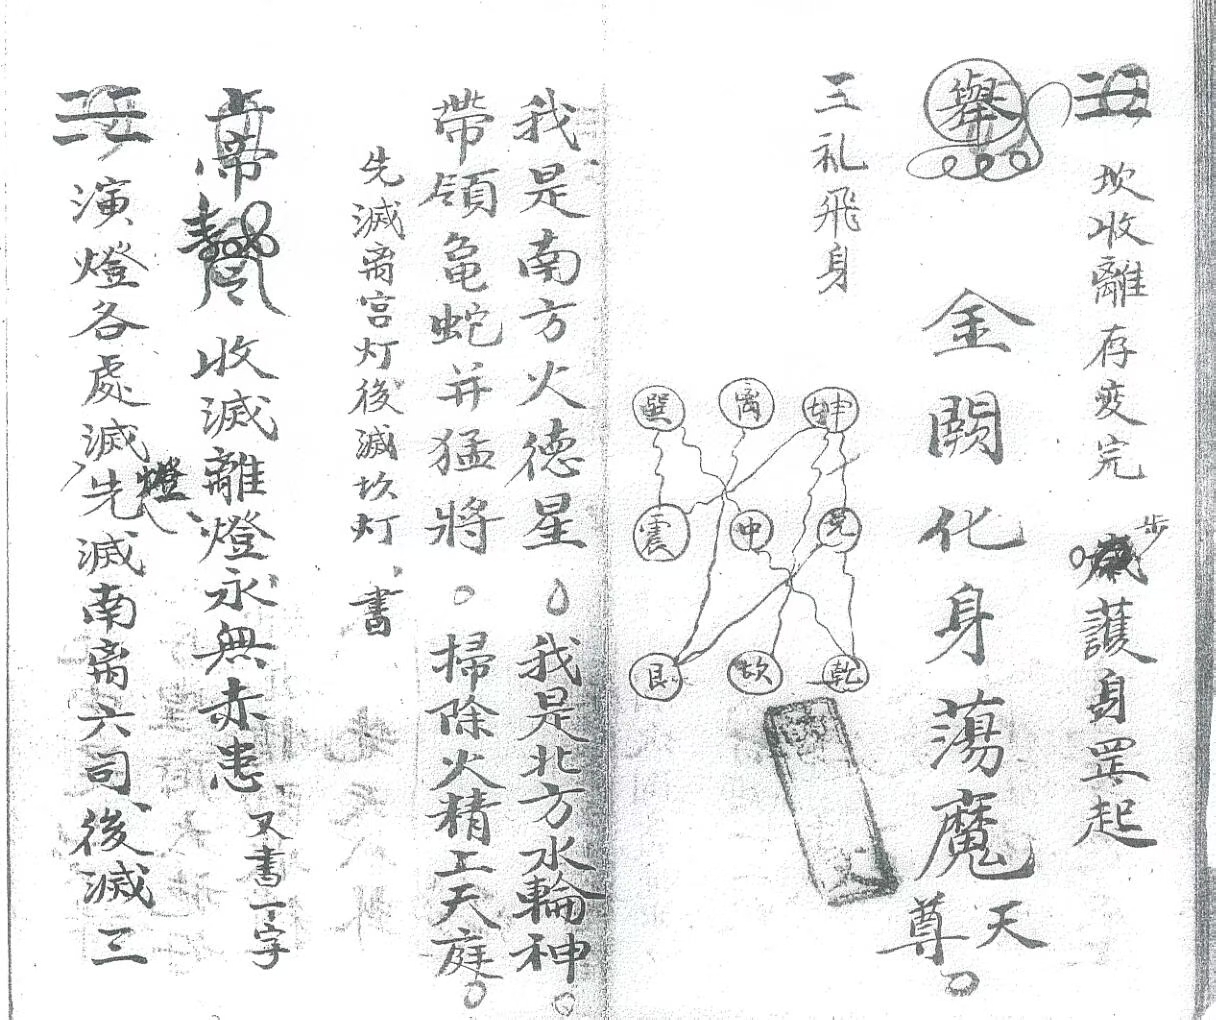 坎收離存変完 步護身罡起
舉 金闕化身蕩魔天尊
三礼飛身
巽 离 坤
震 中 兌
艮 坎 乾
我是南方火德星。我是北方水輪神。
帶領龜蛇并猛將。掃除火精上天庭。
先滅离宮灯後滅坎灯 書
帝 收滅離燈永無赤患 又書一字
演燈各處滅燈先滅南离六司後滅三